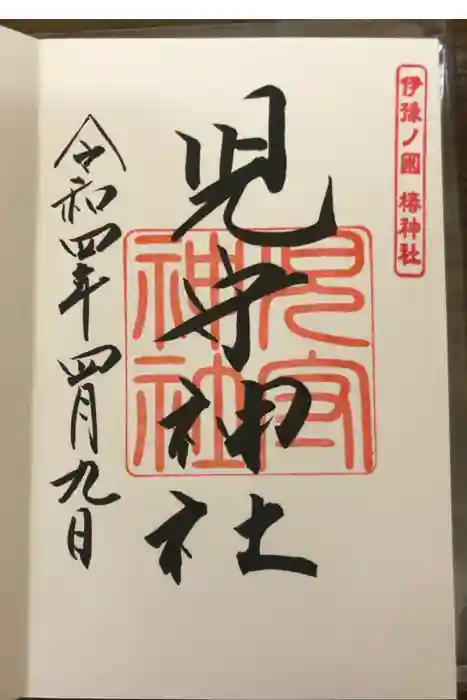 伊豫ノ國 椿神社
児守神社
児守神社
令和四年四月九日